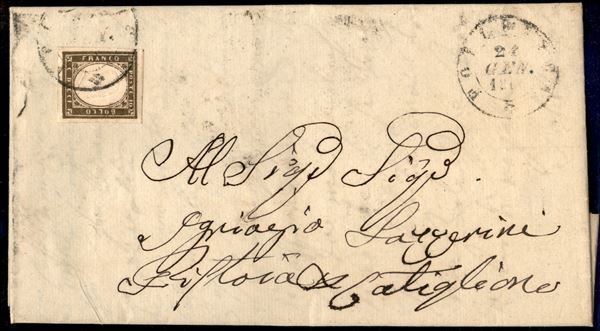 FRANCO
BOLLO
GEN.
Al Sigr Sigr
Ignazio Lazzerini
Pistoia x Catiglione